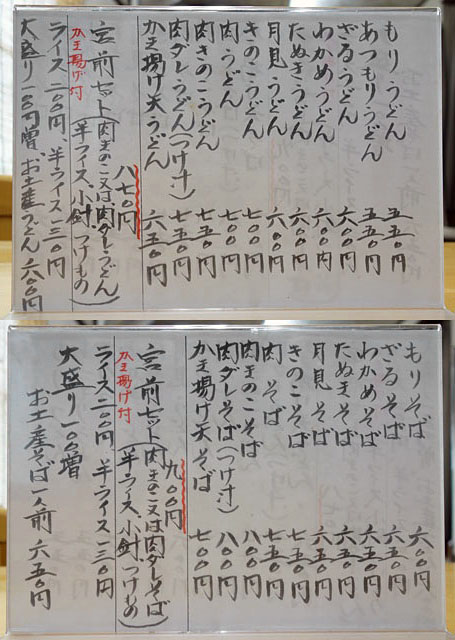 もりうどん 五五〇円
あつもりうどん 五五〇円
ざるうどん 六〇〇円
わかめうどん 六〇〇円
たぬきうどん 六〇〇円
月見うどん 六〇〇円
きのこうどん 七〇〇円
肉うどん 七〇〇円
肉きのこうどん 七五〇円
肉ダレうどん(つけ汁) 七五〇円
かき揚げ天うどん 六五〇円
八七〇円
宮前セット(肉きのこ又は肉ダレうどん
半ライス、小針、つけもの)
かき揚げ付
ライス二〇〇円、半ライス一三〇円
大盛り一〇〇円増 お土産うどん 六〇〇円
もりそば 六〇〇円
ざるそば 六五〇円
わかめそば 六五〇円
たぬきそば 六五〇円
月見そば 六五〇円
きのこそば 七五〇円
肉そば 七五〇円
肉きのこそば 八〇〇円
肉ダレそば(つけ汁) 八〇〇円
かき揚げ天そば 七〇〇円
九〇〇円
宮前セット(肉きのこ又は肉ダレそば
半ライス、小針、つけもの)
かき揚げ付
ライス二〇〇円 半ライス一三〇円
大盛り一〇〇増
お土産そば一人前 六五〇円